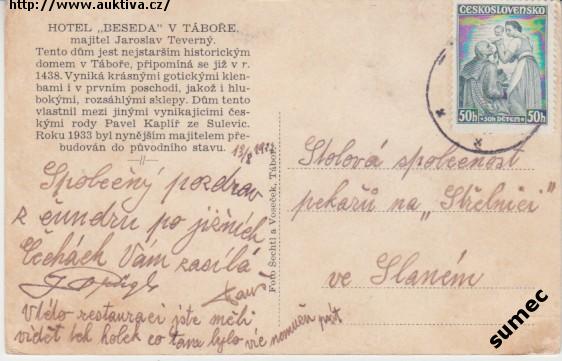 http://www.auktiva.cz/
HOTEL „BESEDA" V TÁBOŘE,
majitel Jaroslav Teverný.
Tento dům jest nejstarším historickým
domem v Táboře, připomíná se již v r.
1438. Vyniká krásnými gotickými klen-
bami i v prvním poschodí, jakož i hlu-
bokými, rozsáhlými sklepy. Dům tento
vlastnil mezi jinými vynikajícími čes-
kými rody Pavel Kaplíř ze Sulevic.
Roku 1933 byl nynějším majitelem pře-
budován do původního stavu.
Společný pozdrav
z čundru po jižních
Čechách Vám zasílá
V této restauraci jste měli
vidět těch holek co tam bylo víc
Foto Šechtl a Voseček, Tábor
ČESKOSLOVENSKO
50h
50h DĚTEM
50h
Stolová společnost
pekařů na „Střelnici"
ve Slaném
sumec